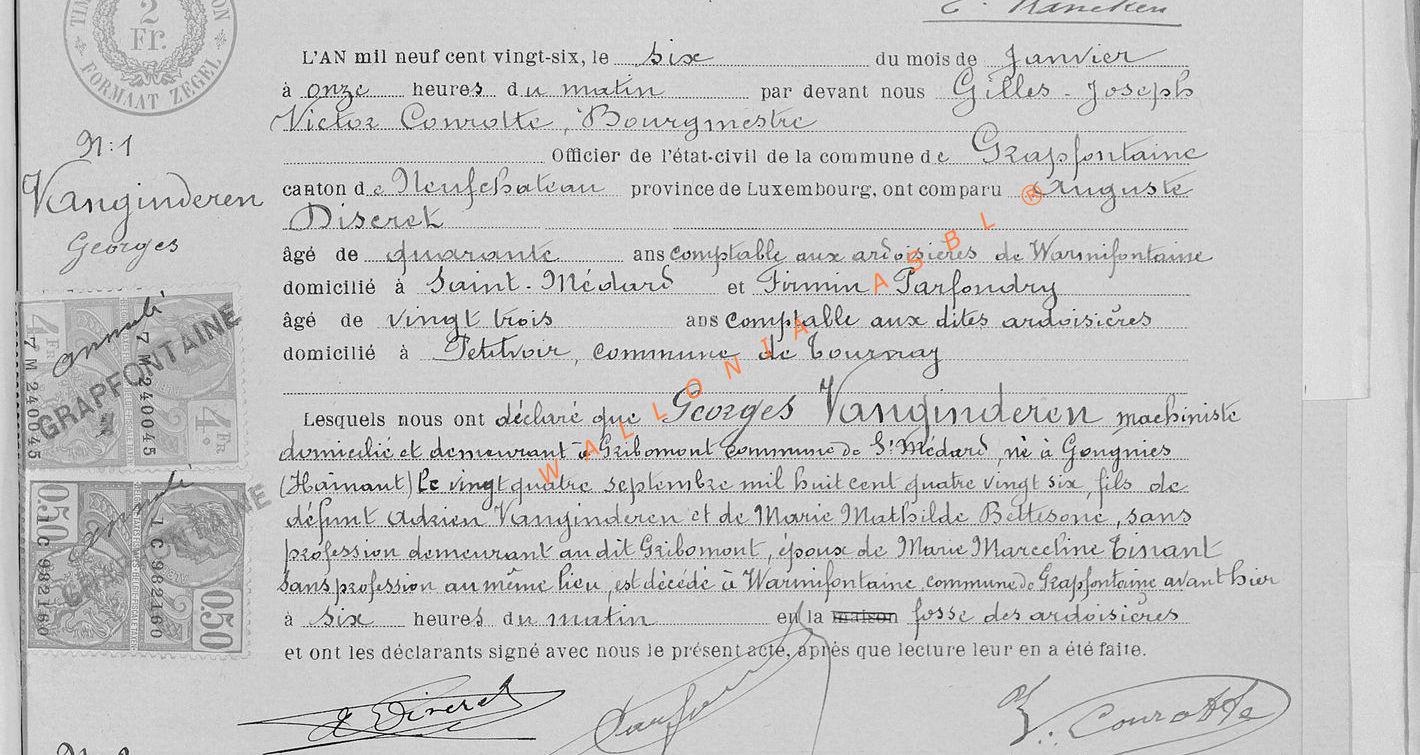 2
Fr.
FORMAAT ZEGEL
L'AN mil neuf cent vingt-six, le six du mois de Janvier
à onze heures du matin par devant nous Gilles-Joseph
Victor Conrotte, Bourgmestre
N:1
Officier de l'état-civil de la commune de Grapfontaine
Vanginderen
Georges
canton de Neufchateau province de Luxembourg, ont comparu Auguste
Discret
âgé de quarante ans comptable aux ardoisières de Warmifontaine
domicilié à Saint-Médard et Firmin Parfondry
âgé de vingt trois ans comptable aux dites ardoisières
domicilié à Petitvoir, commune de Tournay
Lesquels nous ont déclaré que Georges Vanginderen machiniste
domicilié et demeurant à Gribomont commune de St Médard, né à Gougnies
(Hainaut) le vingt quatre septembre mil huit cent quatre vingt six, fils de
défunt Adrien Vanginderen et de Marie Mathilde Bettesone, sans
profession demeurant au dit Gribomont, époux de Marie Marceline Tinant
sans profession au même lieu, est décédé à Warmifontaine commune de Grapfontaine avant hier
à six heures du matin en la maison fosse des ardoisières
et ont les déclarants signé avec nous le présent acte, après que lecture leur en a été faite.
annulé
GRAPFONTAINE
4 FR
7 M 240045
7 M 240045
4 FR
annulé
0.50
1C 982160
1C 982160
0.50
WALLONIA ASBL ®
A Discret
V. Conrotte